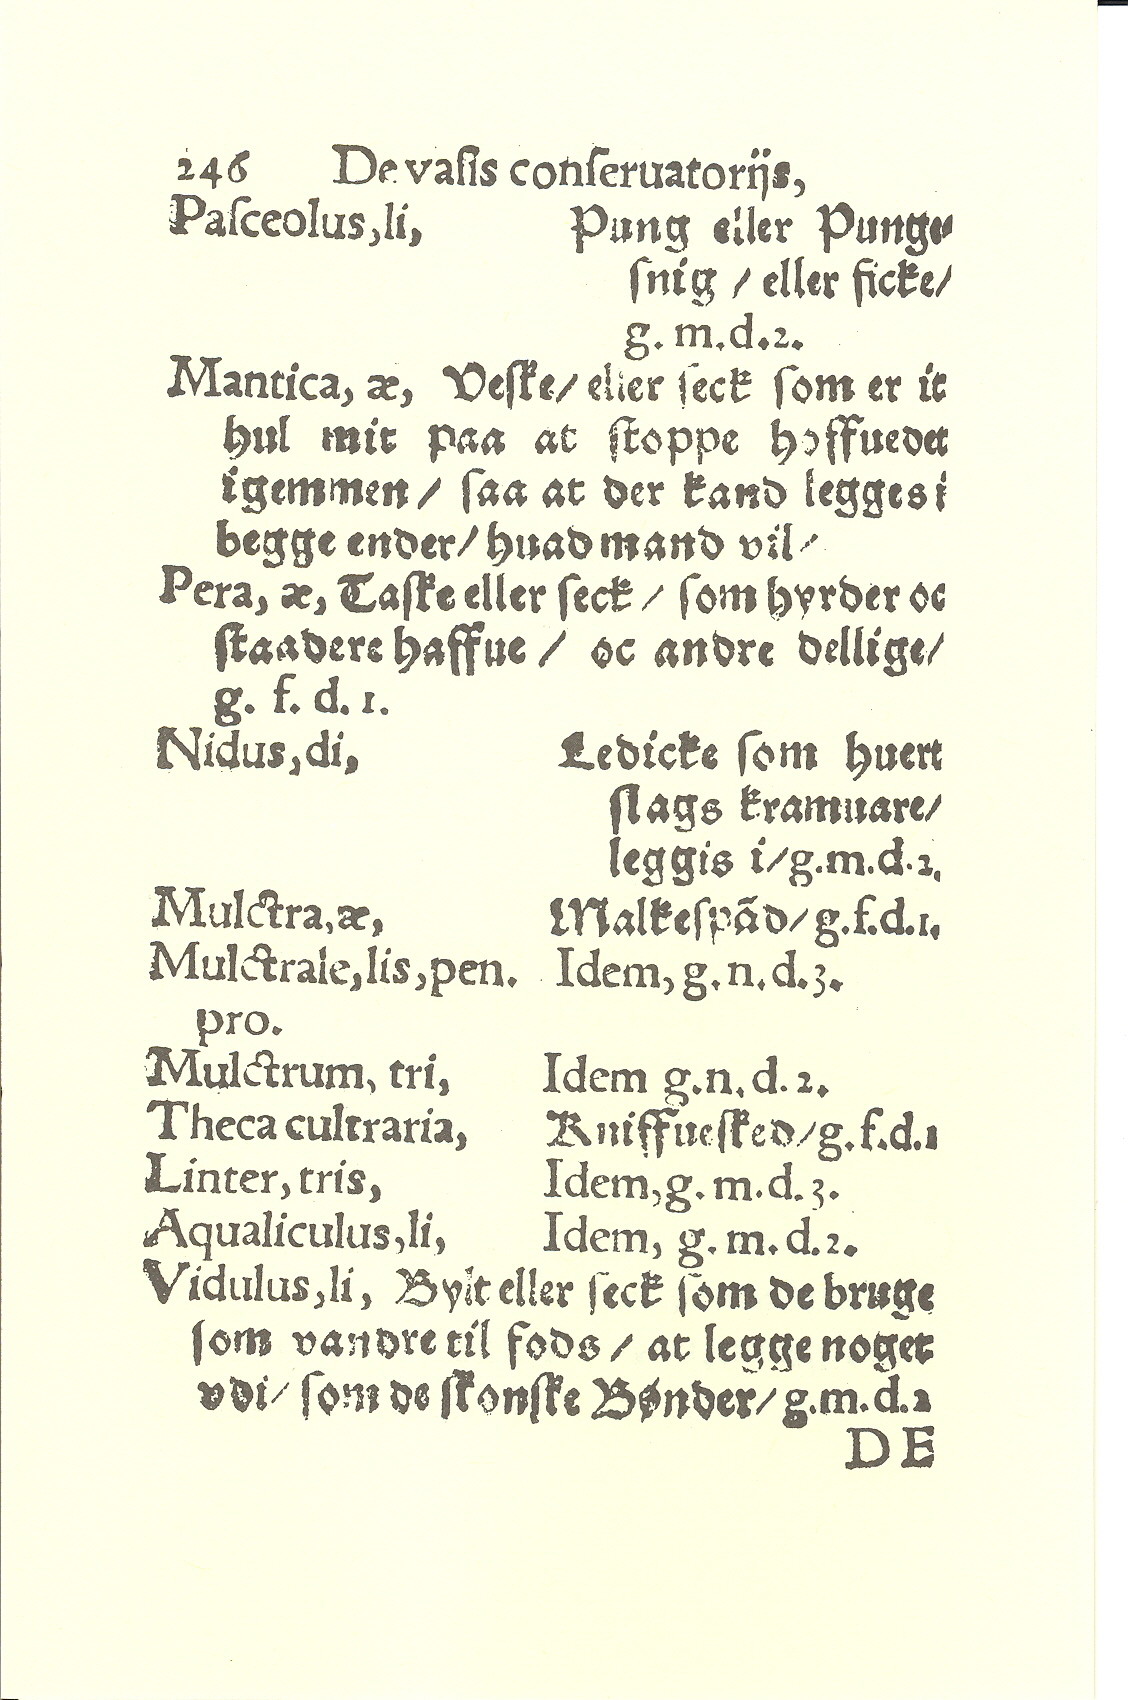 246 De vasis conseruatorijs,
Pasceolus, li, Pung eller Punge⸗
snig / eller ficke/
g. m. d. 2.
Mantica, æ, Veske/ eller seck som er it
hul mit paa at stoppe hoffuedet
igemmen / saa at der kand legges i
begge ender/ huad mand vil/
Pera, æ, Taske eller seck / som hyrder oc
staadere haffue / oc andre dellige/
g. f. d. 1.
Nidus, di, Ledicke som huert
slags kramuare/
leggis i/ g. m. d. 2.
Mulctra, æ, Malkespãd/ g. f. d. 1.
Mulctrale, lis, pen. Idem, g. n. d. 3.
pro.
Mulctrum, tri, Idem g. n. d. 2.
Theca cultraria, Kniffuesked/ g. f. d. 1
Linter, tris, Idem, g. m. d. 3.
Aqualiculus, li, Idem, g. m. d. 2.
Vidulus, li, Bylt eller seck som de bruge
som vandre til fods / at legge noget
vdi/ som de skonske Bønder/ g. m. d. 2
DE